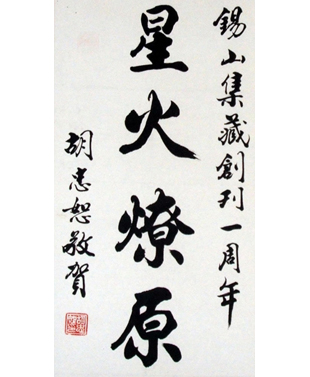 锡山集藏創刊一周年
星火燎原
胡忠恕敬贺